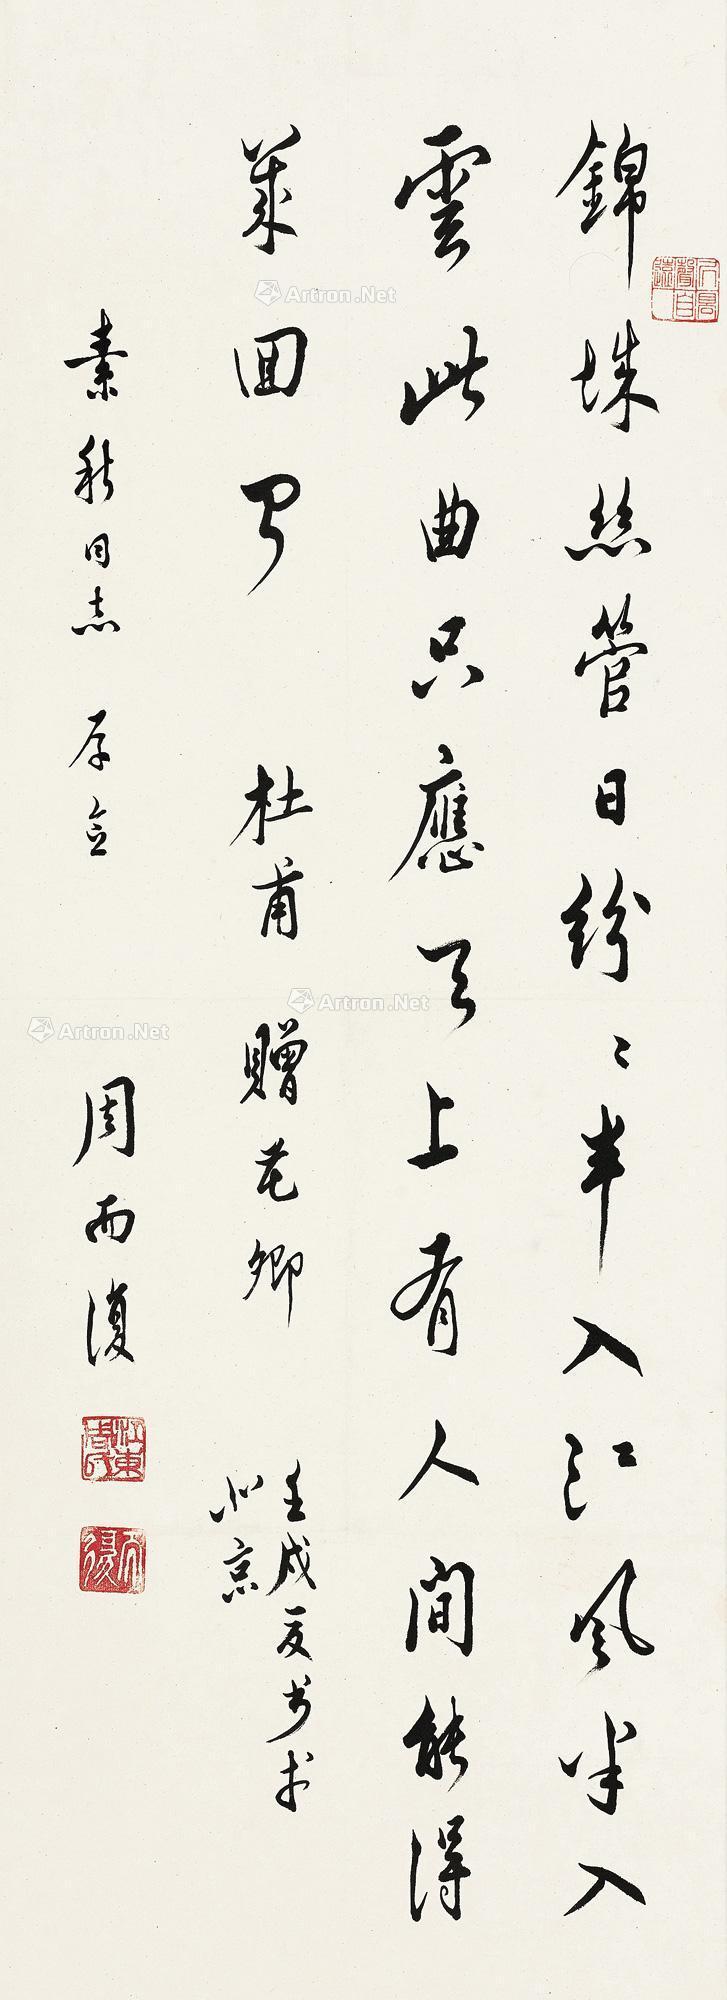 居高聲自遠
錦城絲管日紛〻半入江風半入
雲此曲只應天上有人間能得
幾回聞 杜甫 贈花卿
壬戌夏書於
北京
素秋同志 存念 周而復
江東周氏
而復
Artron.Net
Artron.Net
Artron.Net